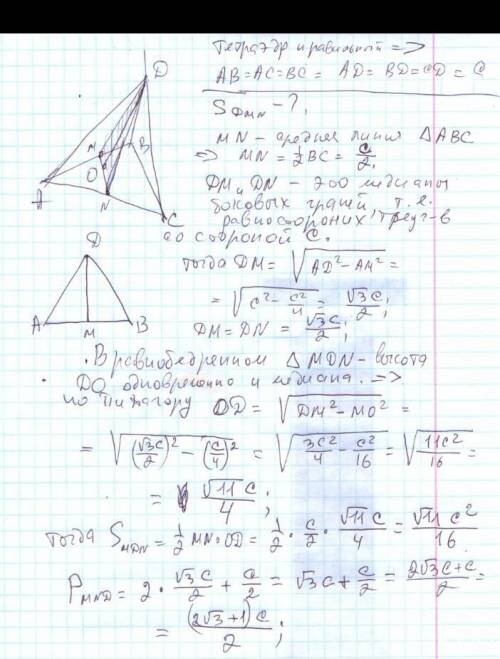 Тетраэдр правильный =>
AB=AC=BC= AD=BD=CD=C
S DMN - ?,
MN - средняя линия ΔABC
=> MN = 1/2 BC = c/2;
DM и DN - это медианы
боковых граней, т.е.
равностороних треуг-в
со стороной C.
тогда DM = √(AD² - AM²) =
= √(c² - c²/4) = √3c/2;
DM = DN = √3c/2;
D
M
B
O
A
N
C
D
A
M
B
. В равнобедренном ΔMDN - высота
. DO одновременно и медиана. =>
по пифагору OD = √(DM² - MO²) =
= √((√3c/2)² - (c/4)²) = √(3c²/4 - c²/16) = √(11c²/16) =
= √11 c/4;
тогда S MDN = 1/2 MN·OD = 1/2 · c/2 · √11 c/4 = √11 c²/16
P MND = 2 · √3c/2 + c/2 = √3c + c/2 = 2√3c+c/2 =
= (2√3+1)c/2;